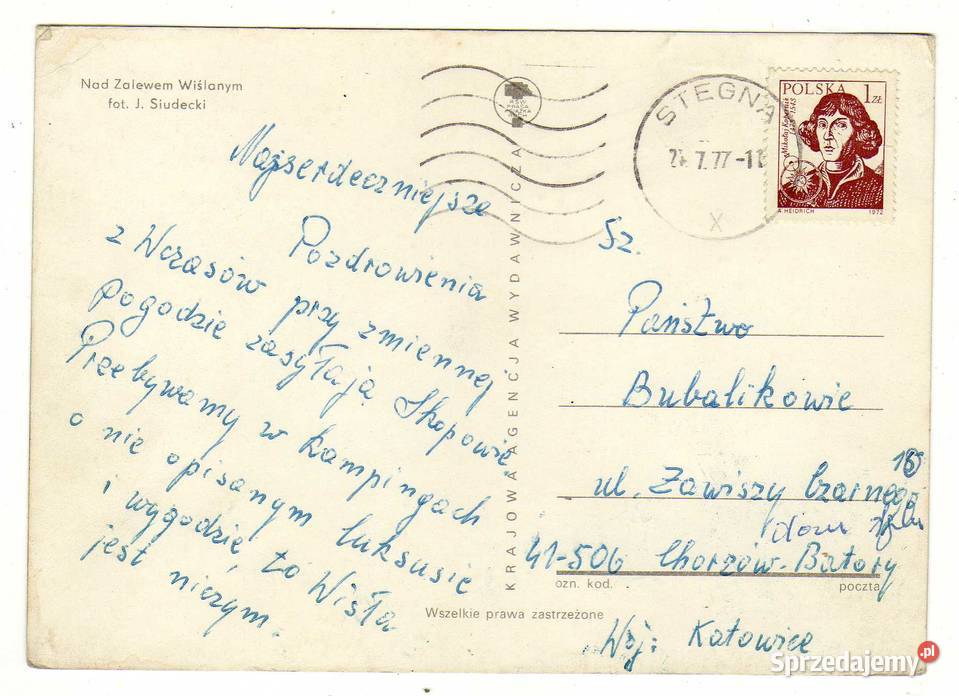 Nad Zalewem Wiślanym
fot. J. Siudecki
Najserdeczniejsze
Pozdrowienia
z Wczasów przy zmiennej
Pogodzie zasyłają Skopowie.
Przebywamy w kampingach
o nie opisanym luksusie
i wygodzie, to Wisła
jest niczym.
KRAJOWA AGENCJA WYDAWNICZA
Wszelkie prawa zastrzeżone
RSW
PRASA
KSIĄŻKA
RUCH
STEGNA
7.77-11
X
POLSKA 1 ZŁ
Mikołaj Kopernik
1473-1543
A. HEIDRICH 1972
Sz.
Państwo
Bubalikowie
ul. Zawiszy Czarnego
dom
41-506 Chorzów-Batory
ozn. kod. poczta
Woj: Katowice
Sprzedajemy.pl